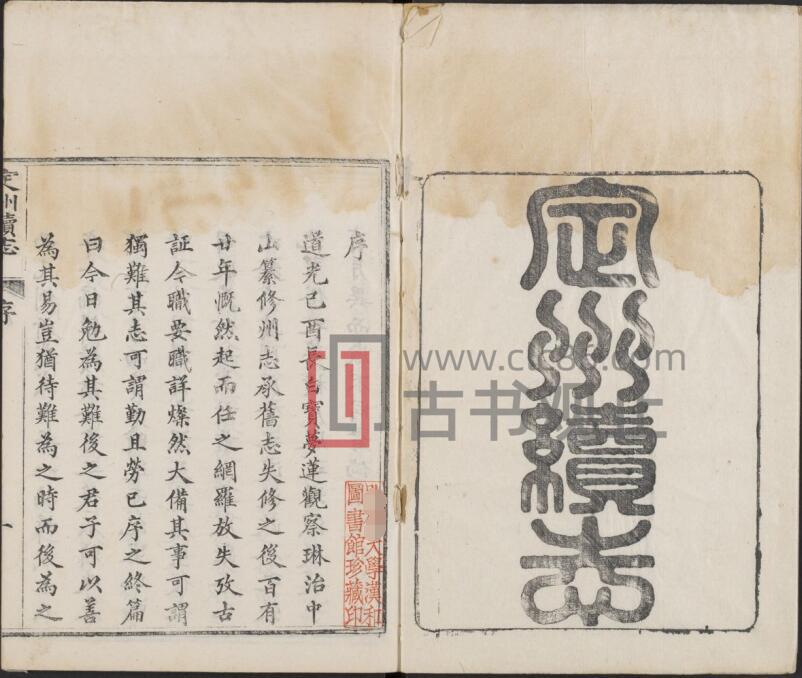 定州續志
序
道光己酉長白寶夢蓮觀察琳治中
山纂修州志承舊志失修之後百有
廿年慨然起而任之網羅放失攷古
証今職要職詳燦然大備其事可謂
獨難其志可謂勤且勞已序之終篇
曰今日勉為其難後之君子可以善
為其易豈猶待難為之時而後為之
定州續志
序
一
大學漢和
圖書館珍藏印
www.
古书